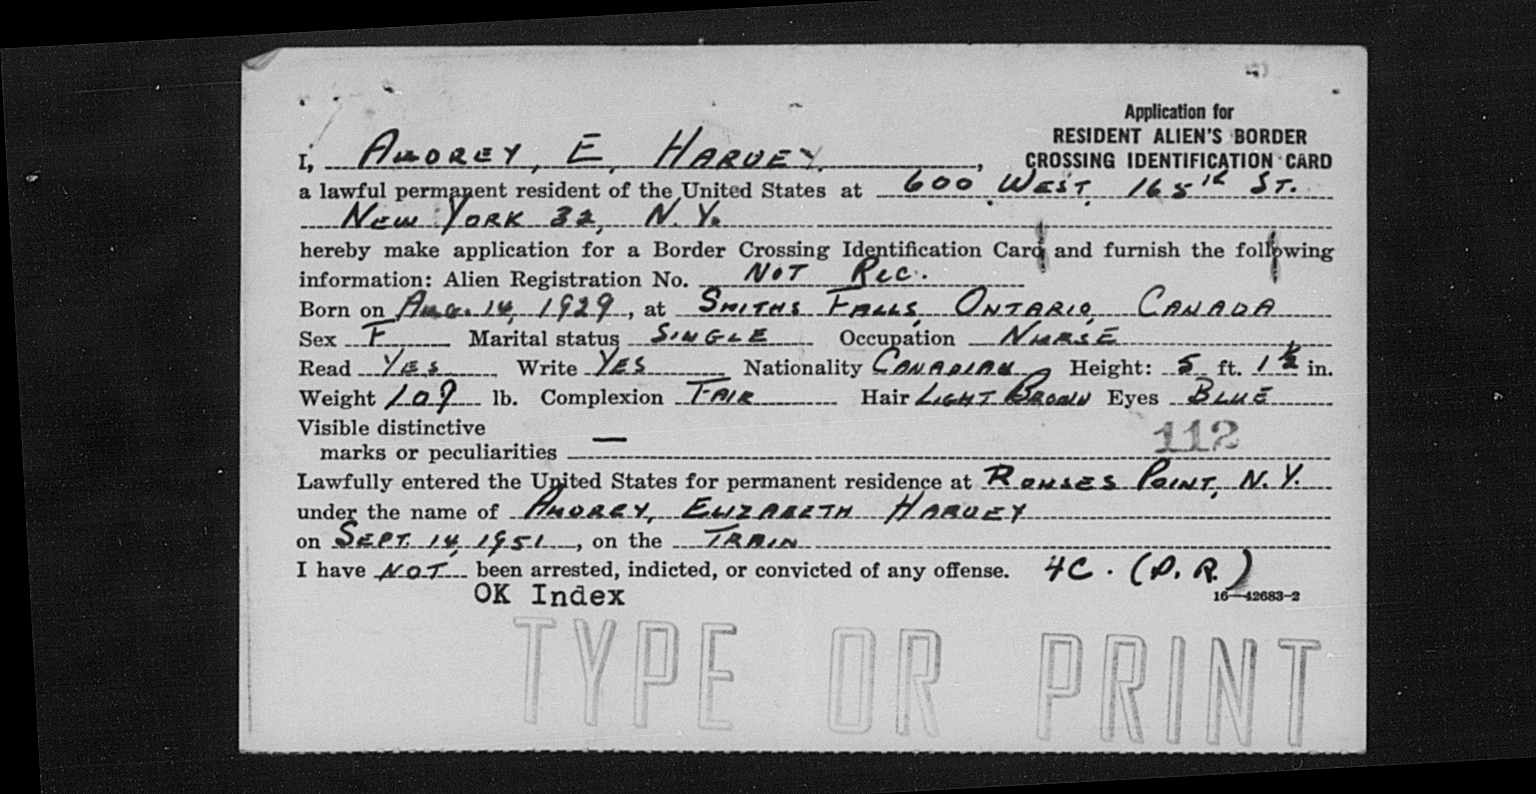 Application for
RESIDENT ALIEN'S BORDER
CROSSING IDENTIFICATION CARD
I, AUDREY, E, HARVEY,
a lawful permanent resident of the United States at 600 WEST, 165th ST.
NEW YORK 32, N.Y.
hereby make application for a Border Crossing Identification Card and furnish the following
information: Alien Registration No. NOT REC.
Born on AUG. 14, 1929, at SMITHS FALLS, ONTARIO, CANADA
Sex F Marital status SINGLE Occupation NURSE
Read YES Write YES Nationality CANADIAN Height: 5 ft. 1 1/2 in.
Weight 109 lb. Complexion FAIR Hair LIGHT BROWN Eyes BLUE
Visible distinctive
marks or peculiarities — 112
Lawfully entered the United States for permanent residence at ROUSES POINT, N.Y.
under the name of AUDREY, ELIZABETH HARVEY
on SEPT. 14, 1951, on the TRAIN
I have NOT been arrested, indicted, or convicted of any offense. 4C. (P.R.)
OK Index 16—42683-2
TYPE OR PRINT